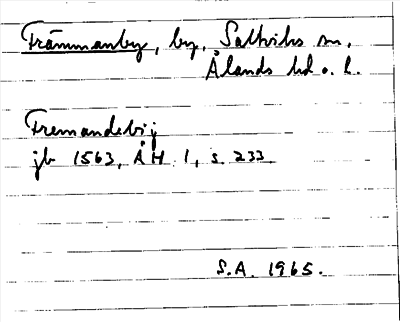 Främmanby, by, Saltviks sn,
Ålands hd o. l.
Fremandebij
jb 1563, ÅH 1, s. 233
S.A. 1965.